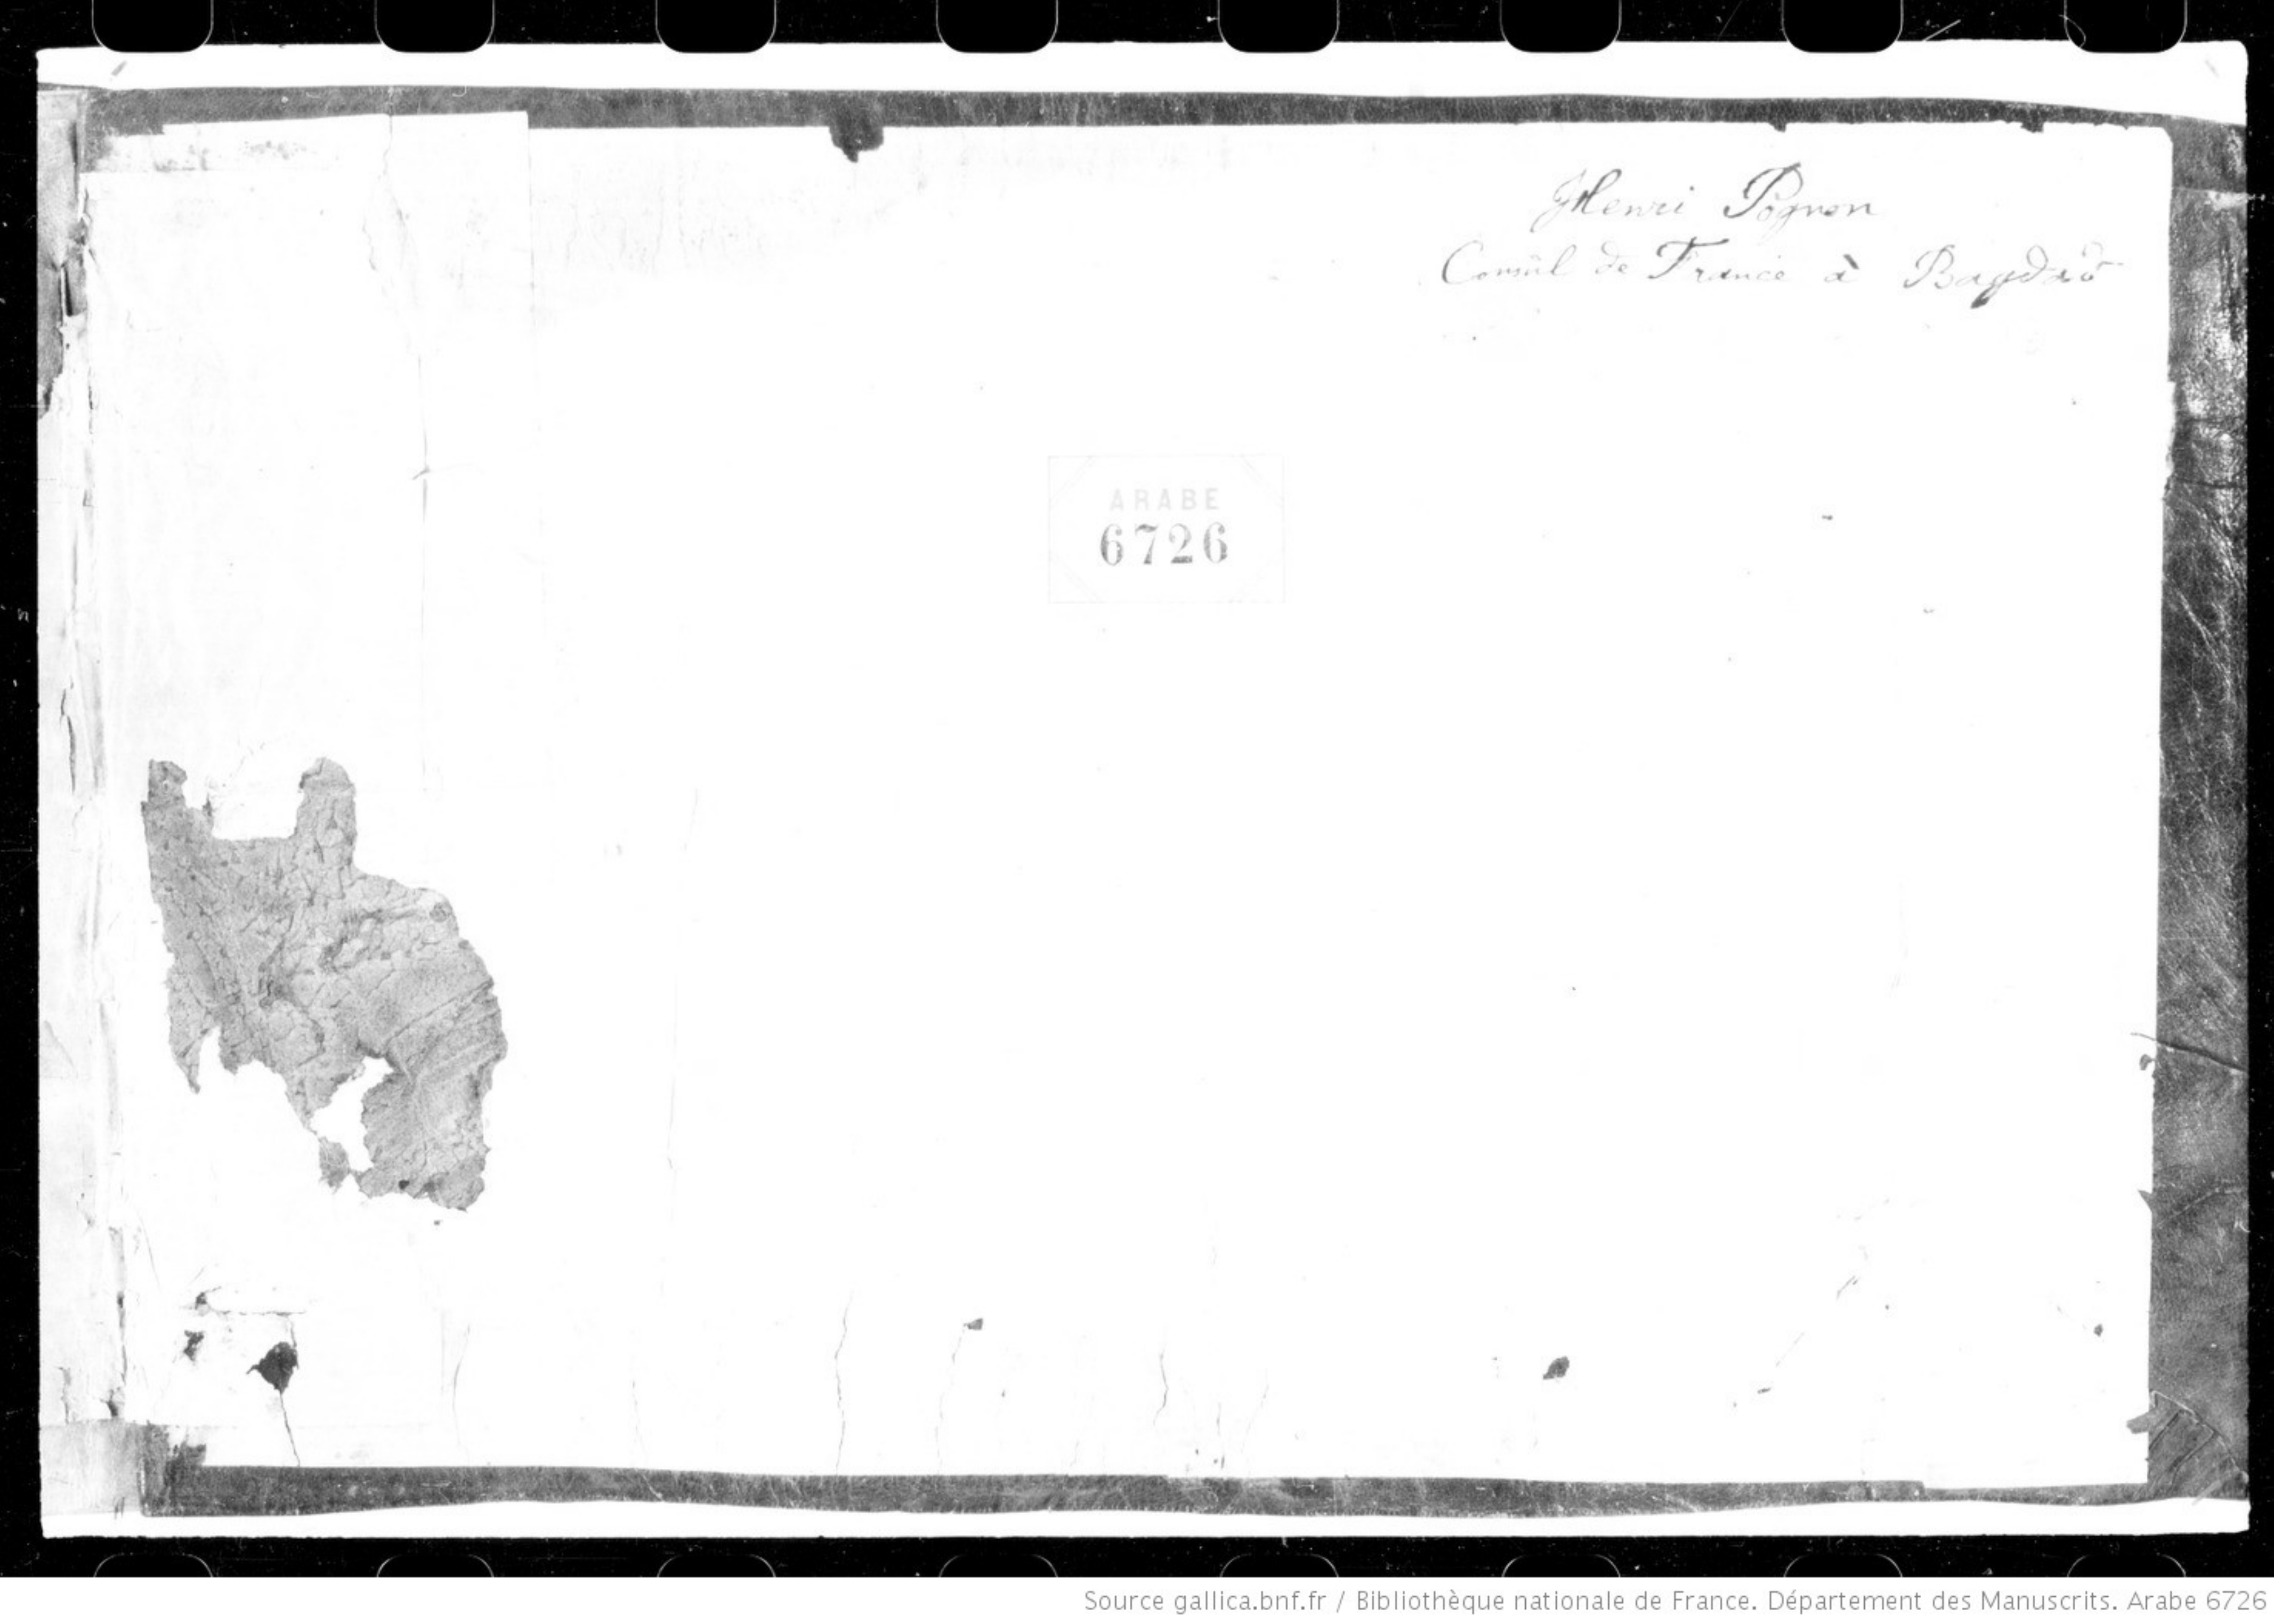 Henri Pognon
Consul de France à Bagdad
ARABE
6726
Source gallica.bnf.fr / Bibliothèque nationale de France. Département des Manuscrits. Arabe 6726